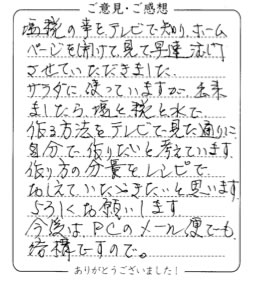 ご意見・ご感想
塩糀の事をテレビで知り、ホーム
ページを開けて見て早速注文
させていただきました。
サラダに使っていますが、出来
ましたら塩と糀と水で
作る方法をテレビで見た通りに
自分で作りたいと考えています
作り方の分量をレシピで
おしえていただきたいと思います
よろしくお願いします
今後はPCのメール便でも
結構ですので。
ありがとうございました！